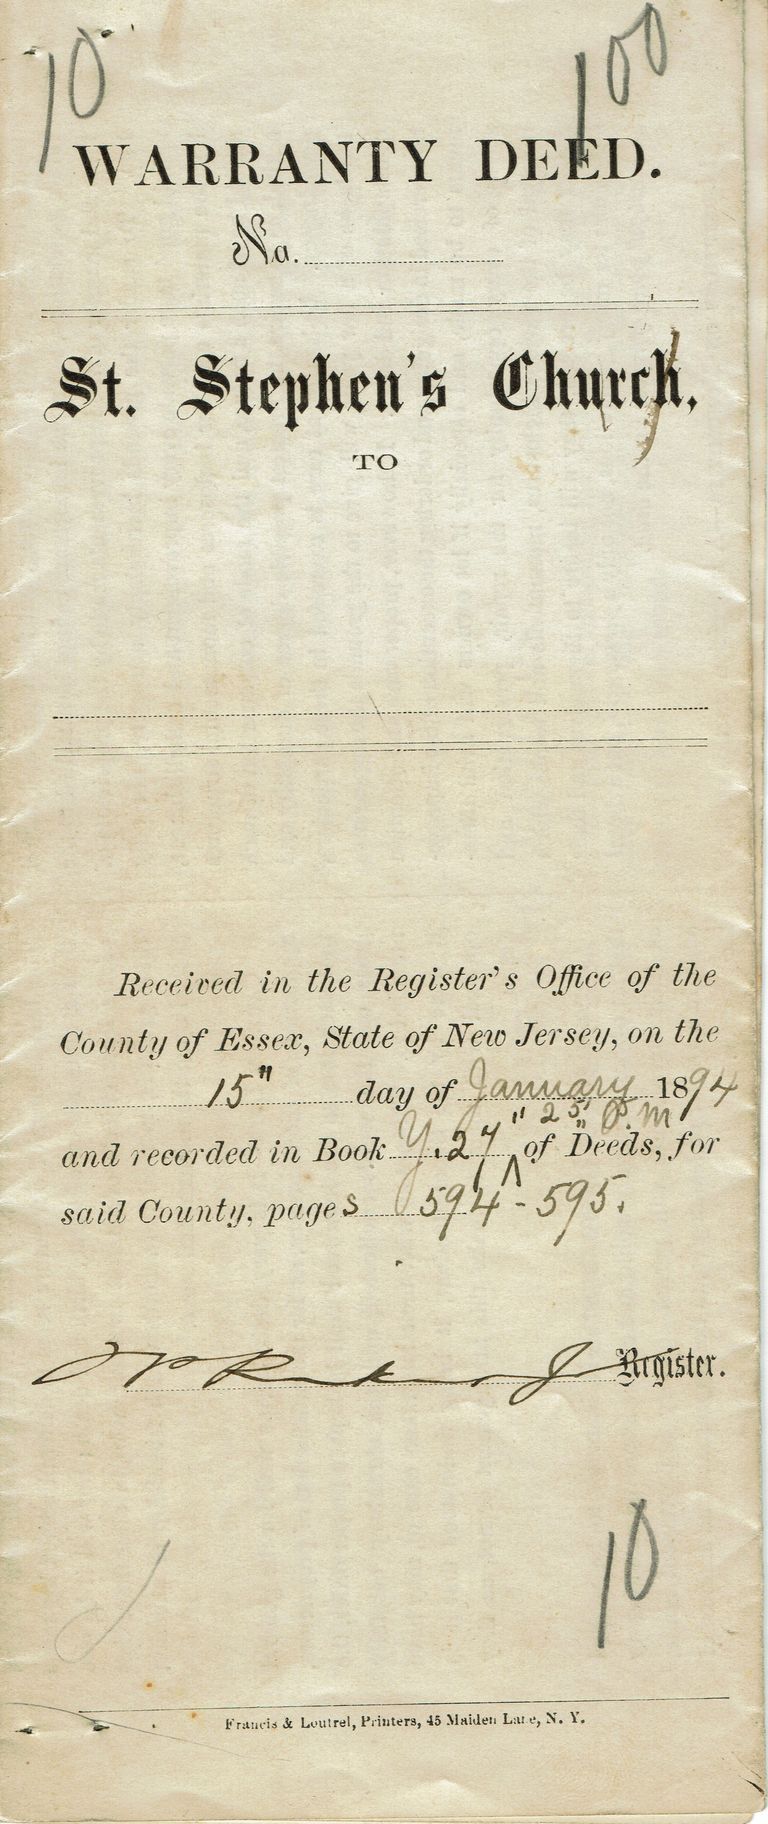 10 100
WARRANTY DEED.
No.
St. Stephen's Church,
TO
Received in the Register's Office of the
County of Essex, State of New Jersey, on the
15" day of January 1894
" 25" P.M
and recorded in Book Y.27 of Deeds, for
said County, pages 594-595.
Register.
10
Francis & Loutrel, Printers, 45 Maiden Lane, N. Y.